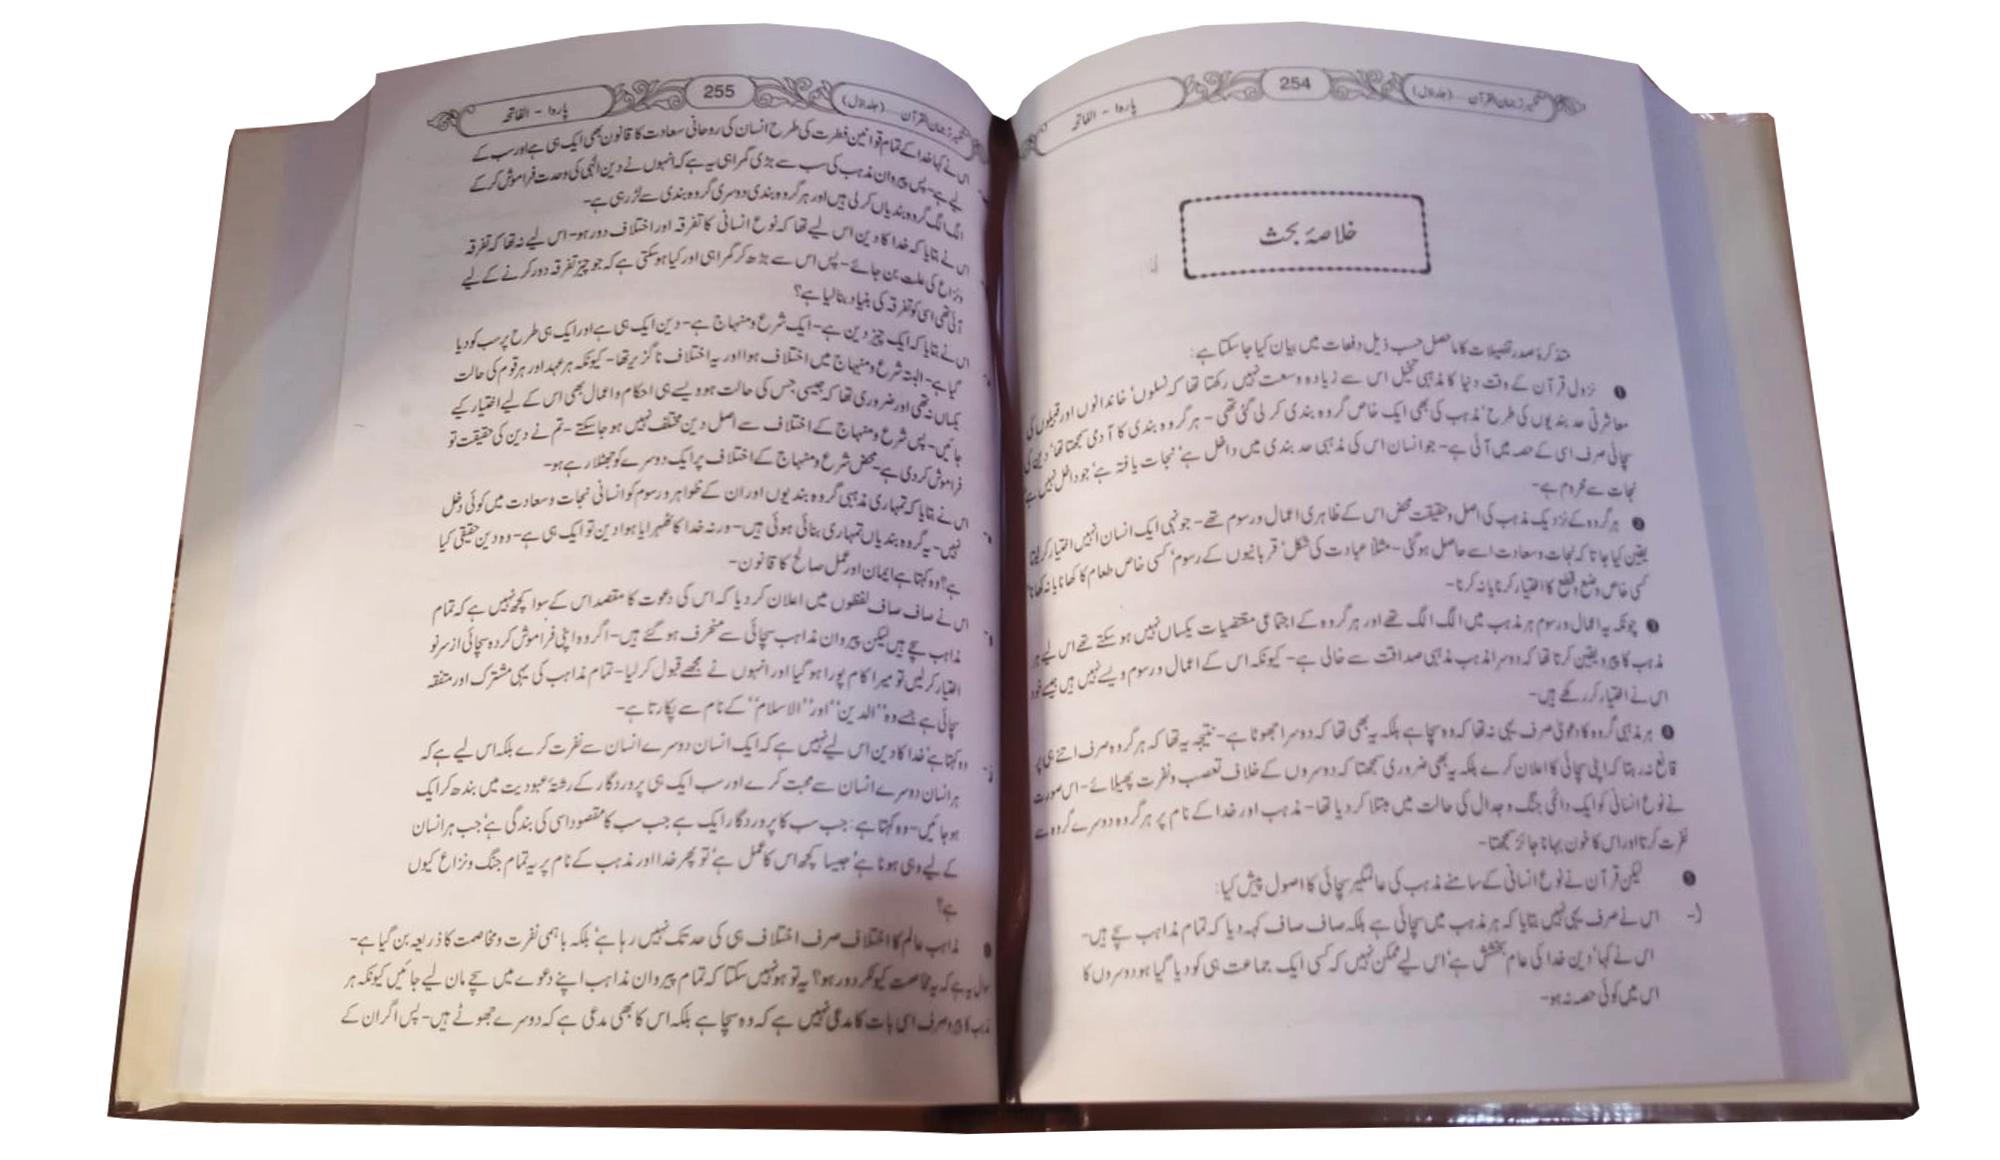 تفسیر ترجمان القرآن۔۔۔۔(جلد اول)
254
پارہ ۱ - الفاتحہ
خلاصۂ بحث
متذکرۂ صدر تفصیلات کا ماحصل حسب ذیل دفعات میں بیان کیا جا سکتا ہے:
❶ نزول قرآن کے وقت دنیا کا مذہبی تخیل اس سے زیادہ وسعت نہیں رکھتا تھا کہ نسلوں' خاندانوں اور قبیلوں کی
معاشرتی حد بندیوں کی طرح' مذہب کی بھی ایک خاص گروہ بندی کر لی گئی تھی - ہر گروہ بندی کا آدمی سمجھتا تھا' دین کی
سچائی صرف اسی کے حصہ میں آئی ہے - جو انسان اس کی مذہبی حد بندی میں داخل ہے' نجات یافتہ ہے' جو داخل نہیں ہے
نجات سے محروم ہے -
❷ ہر گروہ کے نزدیک مذہب کی اصل و حقیقت محض اس کے ظاہری اعمال و رسوم تھے - جونہی ایک انسان انہیں اختیار کر لیتا
یقین کیا جاتا کہ نجات و سعادت اسے حاصل ہو گئی - مثلاً عبادت کی شکل' قربانیوں کے رسوم' کسی خاص طعام کا کھانا یا نہ کھانا'
کسی خاص وضع و قطع کا اختیار کرنا یا نہ کرنا -
❸ چونکہ یہ اعمال و رسوم ہر مذہب میں الگ الگ تھے اور ہر گروہ کے اجتماعی مقتضیات یکساں نہیں ہو سکتے تھے اس لیے ہر
مذہب کا پیرو یقین کرتا تھا کہ دوسرا مذہب مذہبی صداقت سے خالی ہے - کیونکہ اس کے اعمال و رسوم ویسے نہیں ہیں جیسے خود
اس نے اختیار کر رکھے ہیں -
❹ ہر مذہبی گروہ کا دعویٰ صرف یہی نہ تھا کہ وہ سچا ہے بلکہ یہ بھی تھا کہ دوسرا جھوٹا ہے - نتیجہ یہ تھا کہ ہر گروہ صرف اتنے ہی پر
قانع نہ رہتا کہ اپنی سچائی کا اعلان کرے بلکہ یہ بھی ضروری سمجھتا کہ دوسروں کے خلاف تعصب و نفرت پھیلائے - اس صورت
نے نوع انسانی کو ایک دائمی جنگ و جدال کی حالت میں مبتلا کر دیا تھا - مذہب اور خدا کے نام پر ہر گروہ دوسرے گروہ سے
نفرت کرتا اور اس کا خون بہانا جائز سمجھتا -
❺ لیکن قرآن نے نوع انسانی کے سامنے مذہب کی عالمگیر سچائی کا اصول پیش کیا:
(- اس نے صرف یہی نہیں بتایا کہ ہر مذہب میں سچائی ہے بلکہ صاف صاف کہہ دیا کہ تمام مذاہب سچے ہیں -
اس نے کہا' دین خدا کی عام بخشش ہے' اس لیے ممکن نہیں کہ کسی ایک جماعت ہی کو دیا گیا ہو دوسروں کا
اس میں کوئی حصہ نہ ہو -
تفسیر ترجمان القرآن۔۔۔۔(جلد اول)
255
پارہ ۱ - الفاتحہ
اس نے کہا خدا کے تمام قوانین فطرت کی طرح انسان کی روحانی سعادت کا قانون بھی ایک ہی ہے اور سب کے
لیے ہے - پس پیروان مذہب کی سب سے بڑی گمراہی یہ ہے کہ انہوں نے دین الٰہی کی وحدت فراموش کر کے
الگ الگ گروہ بندیاں کر لی ہیں اور ہر گروہ بندی دوسری گروہ بندی سے لڑ رہی ہے -
اس نے بتایا کہ خدا کا دین اس لیے تھا کہ نوع انسانی کا تفرقہ اور اختلاف دور ہو - اس لیے نہ تھا کہ تفرقہ
و نزاع کی علت بن جائے - پس اس سے بڑھ کر گمراہی اور کیا ہو سکتی ہے کہ جو چیز تفرقہ دور کرنے کے لیے
آئی تھی اسی کو تفرقہ کی بنیاد بنا لیا ہے؟
اس نے بتایا کہ ایک چیز دین ہے - ایک شرع و منہاج ہے - دین ایک ہی ہے اور ایک ہی طرح پر سب کو دیا
گیا ہے - البتہ شرع و منہاج میں اختلاف ہوا اور یہ اختلاف ناگزیر تھا - کیونکہ ہر عہد اور ہر قوم کی حالت
یکساں نہ تھی اور ضروری تھا کہ جیسی جس کی حالت ہو ویسے ہی احکام و اعمال بھی اس کے لیے اختیار کیے
جائیں - پس شرع و منہاج کے اختلاف سے اصل دین مختلف نہیں ہو جا سکتے - تم نے دین کی حقیقت تو
فراموش کر دی ہے محض شرع و منہاج کے اختلاف پر ایک دوسرے کو جھٹلا رہے ہو -
اس نے بتایا کہ تمہاری مذہبی گروہ بندیوں اور ان کے ظواہر و رسوم کو انسانی نجات و سعادت میں کوئی دخل
نہیں - یہ گروہ بندیاں تمہاری بنائی ہوئی ہیں - ورنہ خدا کا ٹھہرایا ہوا دین تو ایک ہی ہے - وہ دین حقیقی کیا
ہے؟ وہ کہتا ہے ایمان اور عمل صالح کا قانون -
اس نے صاف صاف لفظوں میں اعلان کر دیا کہ اس کی دعوت کا مقصد اس کے سوا کچھ نہیں ہے کہ تمام
مذاہب سچے ہیں لیکن پیروان مذاہب سچائی سے منحرف ہو گئے ہیں - اگر وہ اپنی فراموش کردہ سچائی از سر نو
اختیار کر لیں تو میرا کام پورا ہو گیا اور انہوں نے مجھے قبول کر لیا - تمام مذاہب کی یہی مشترک اور متفقہ
سچائی ہے جسے وہ ''الدین'' اور ''الاسلام'' کے نام سے پکارتا ہے -
وہ کہتا ہے' خدا کا دین اس لیے نہیں ہے کہ ایک انسان دوسرے انسان سے نفرت کرے بلکہ اس لیے ہے کہ
ہر انسان دوسرے انسان سے محبت کرے اور سب ایک ہی پروردگار کے رشتۂ عبودیت میں بندھ کر ایک
ہو جائیں - وہ کہتا ہے: جب سب کا پروردگار ایک ہے جب سب کا مقصود اسی کی بندگی ہے' جب ہر انسان
کے لیے وہی ہونا ہے' جیسا کچھ اس کا عمل ہے' تو پھر خدا اور مذہب کے نام پر یہ تمام جنگ و نزاع کیوں
ہے؟
مذاہب عالم کا اختلاف صرف اختلاف ہی کی حد تک نہیں رہا ہے' بلکہ باہمی نفرت و مخاصمت کا ذریعہ بن گیا ہے -
سوال یہ ہے کہ یہ مخاصمت کیونکر دور ہو؟ یہ تو ہو نہیں سکتا کہ تمام پیروان مذاہب اپنے دعوے میں سچے مان لیے جائیں کیونکہ ہر
مذہب کا پیرو صرف اسی بات کا مدعی نہیں ہے کہ وہ سچا ہے بلکہ اس کا بھی مدعی ہے کہ دوسرے جھوٹے ہیں - پس اگر ان کے